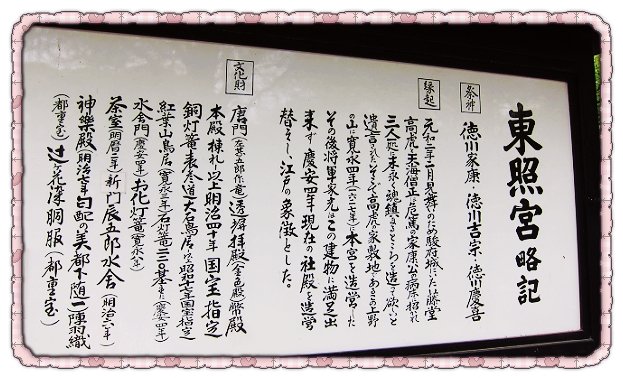 東照宮略記
祭神
徳川家康・徳川吉宗・徳川慶喜
縁起
元和二年二月見舞のため駿府城にいた藤堂
高虎と天海僧正は危篤の家康公の病床に招かれ
三人一処に末永く魂鎮まるところを造って欲しいと
遺言された。そこで高虎の家敷地であるこの上野
の山に寛永四年(一六二七年)に本宮を造営した
その後将軍家光はこの建物に満足出
来ず慶安四年現在の社殿を造営
替えし、江戸の象徴とした。
文化財
唐門(左甚五郎作竜)透塀拝殿(金色殿)幣殿
本殿 棟札 以上明治四十年 国宝指定
銅灯篭 表参道 大石鳥居 以上昭和十七年国宝指定
紅葉山鳥居(寛永三年)石灯篭二三〇基(慶安四年)
水舎門(慶安四年)お化灯篭(寛永八年)
茶室(明暦二年)新門辰五郎水舎(明治六年)
神楽殿(明治七年)勾配の美都下随一 陣羽織
(都重宝)辻ヶ花染胴服(都重宝)